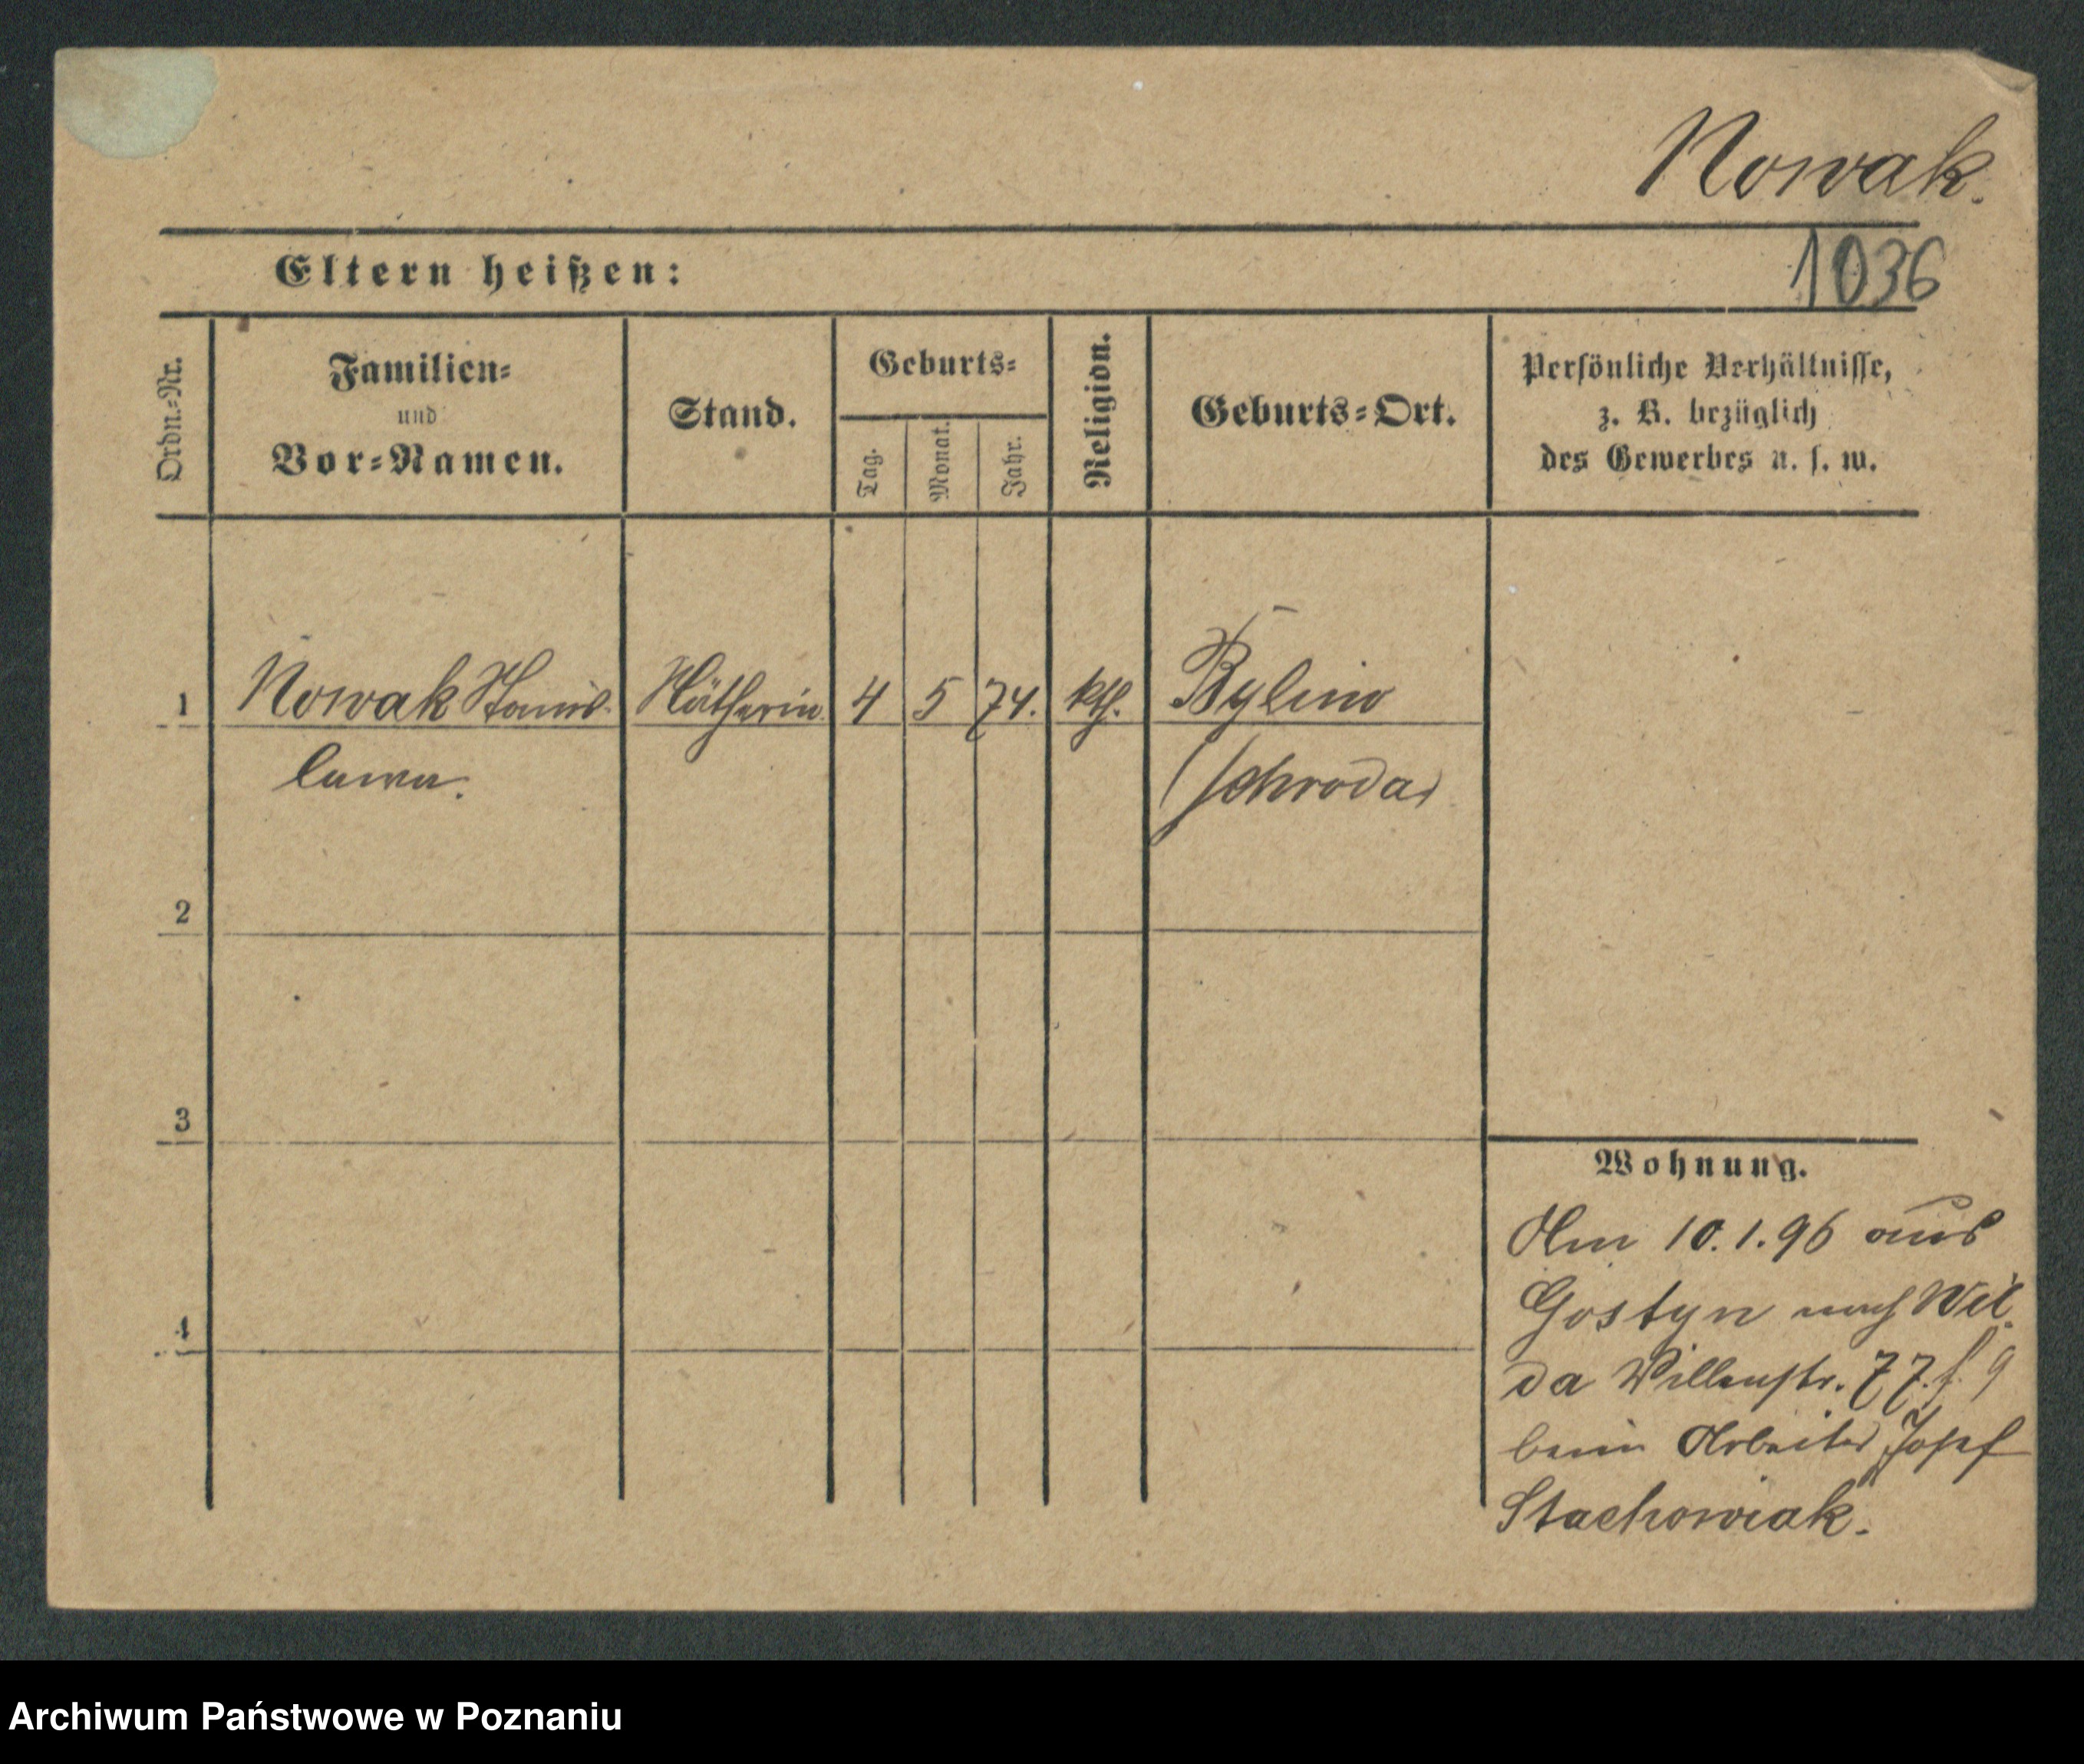 Nowak.
Eltern heißen:
1036
Ordn.-Nr.
Familien-
und
Vor-Namen.
Stand.
Geburts-
Tag.
Monat.
Jahr.
Religion.
Geburts-Ort.
Persönliche Verhältnisse,
z. B. bezüglich
des Gewerbes u. s. w.
1 Nowak Stanis- Nätherin 4 5 74. kth. Bylino
lawa. (Schroda)
2
3
4
Wohnung.
Am 10.1.96 aus
Gostyn nach Wil-
da Villenstr. 77.
beim Arbeiter Josef
Stachowiak.
Archiwum Państwowe w Poznaniu